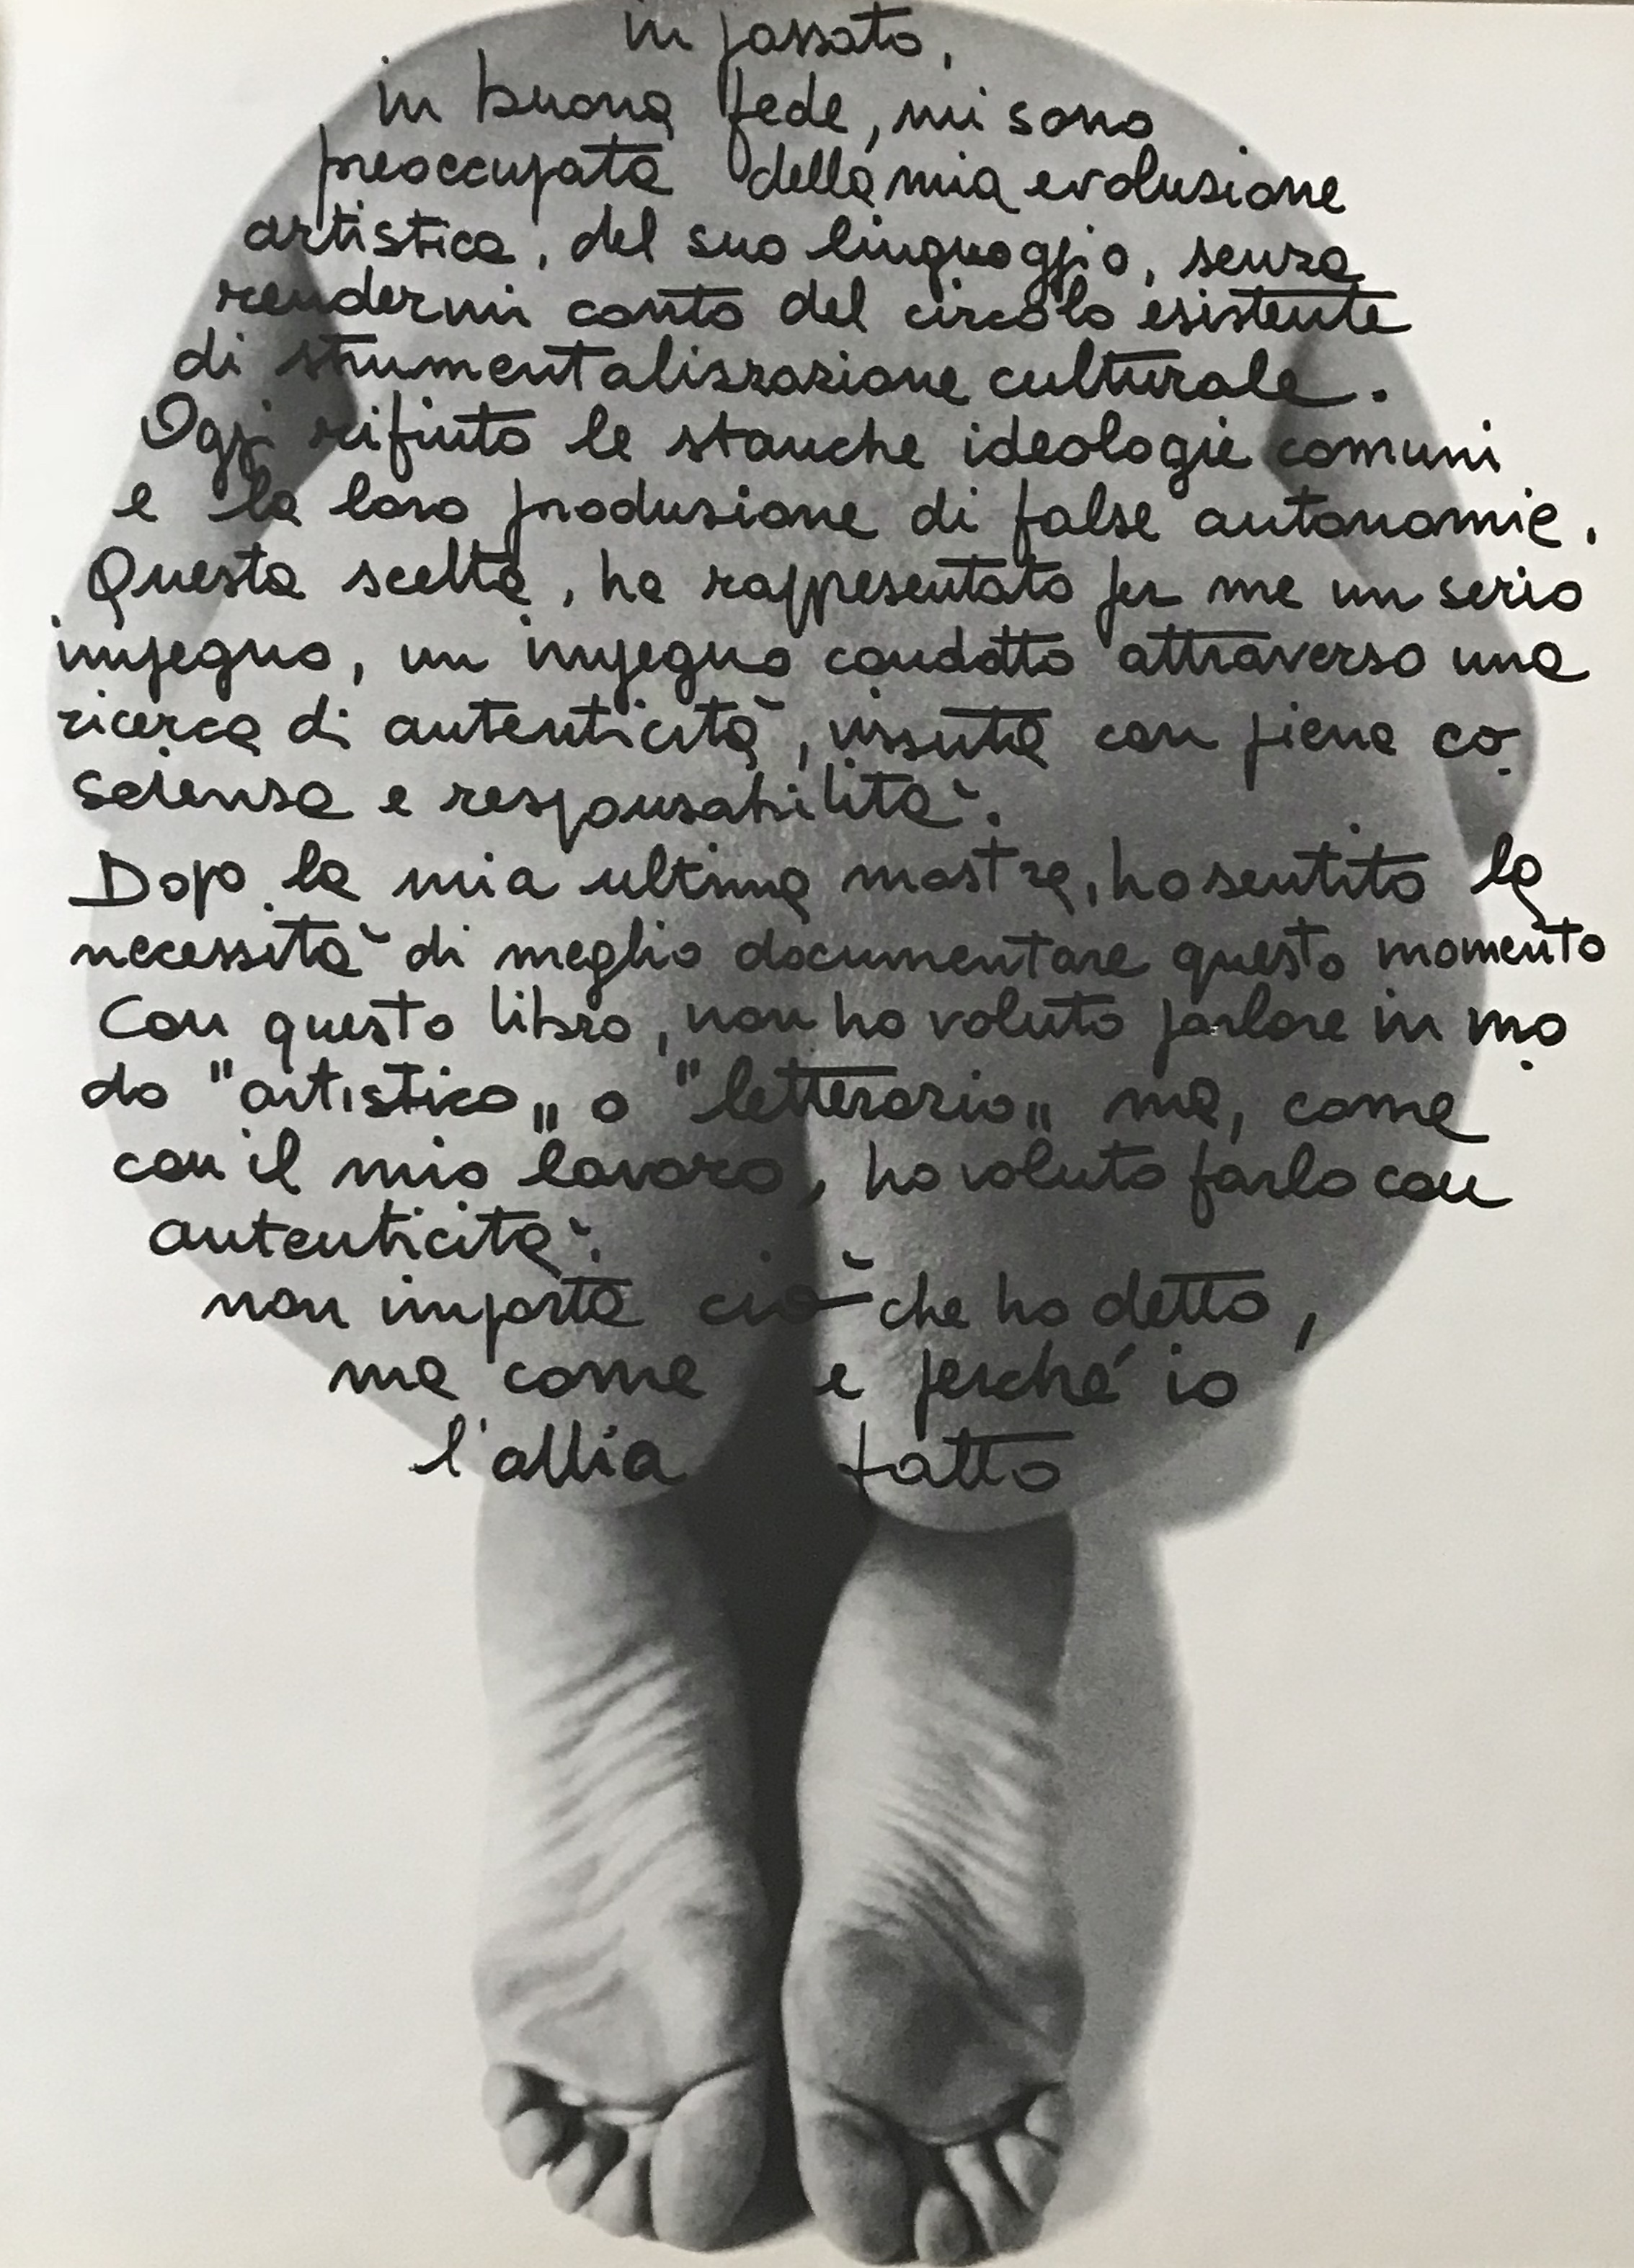 in passato,
in buona fede, mi sono
preoccupata della mia evoluzione
artistica, del suo linguaggio, senza
rendermi conto del circolo esistente
di strumentalizzazione culturale.
Oggi rifiuto le stanche ideologie comuni
e la loro produzione di false autonomie.
Questa scelta, ha rappresentato per me un serio
impegno, un impegno condotto attraverso una
ricerca di autenticità, vissuta con piena co
scienza e responsabilità.
Dopo la mia ultima mostra, ho sentito la
necessità di meglio documentare questo momento
Con questo libro, non ho voluto parlare in mo
do "artistico„ o "letterario„ ma, come
con il mio lavoro, ho voluto farlo con
autenticità.
non importa ciò che ho detto,
ma come e perché io
l'abbia fatto